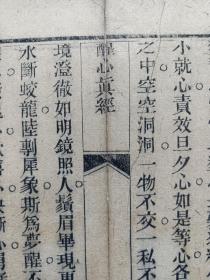 小就心責效旦夕心如是等心各
之中空空洞洞一物不交一私不
醒心真經
境澄徹如明鏡照人鬚眉畢現更
水斷蛟龍陸剸犀象斯為夢醒不